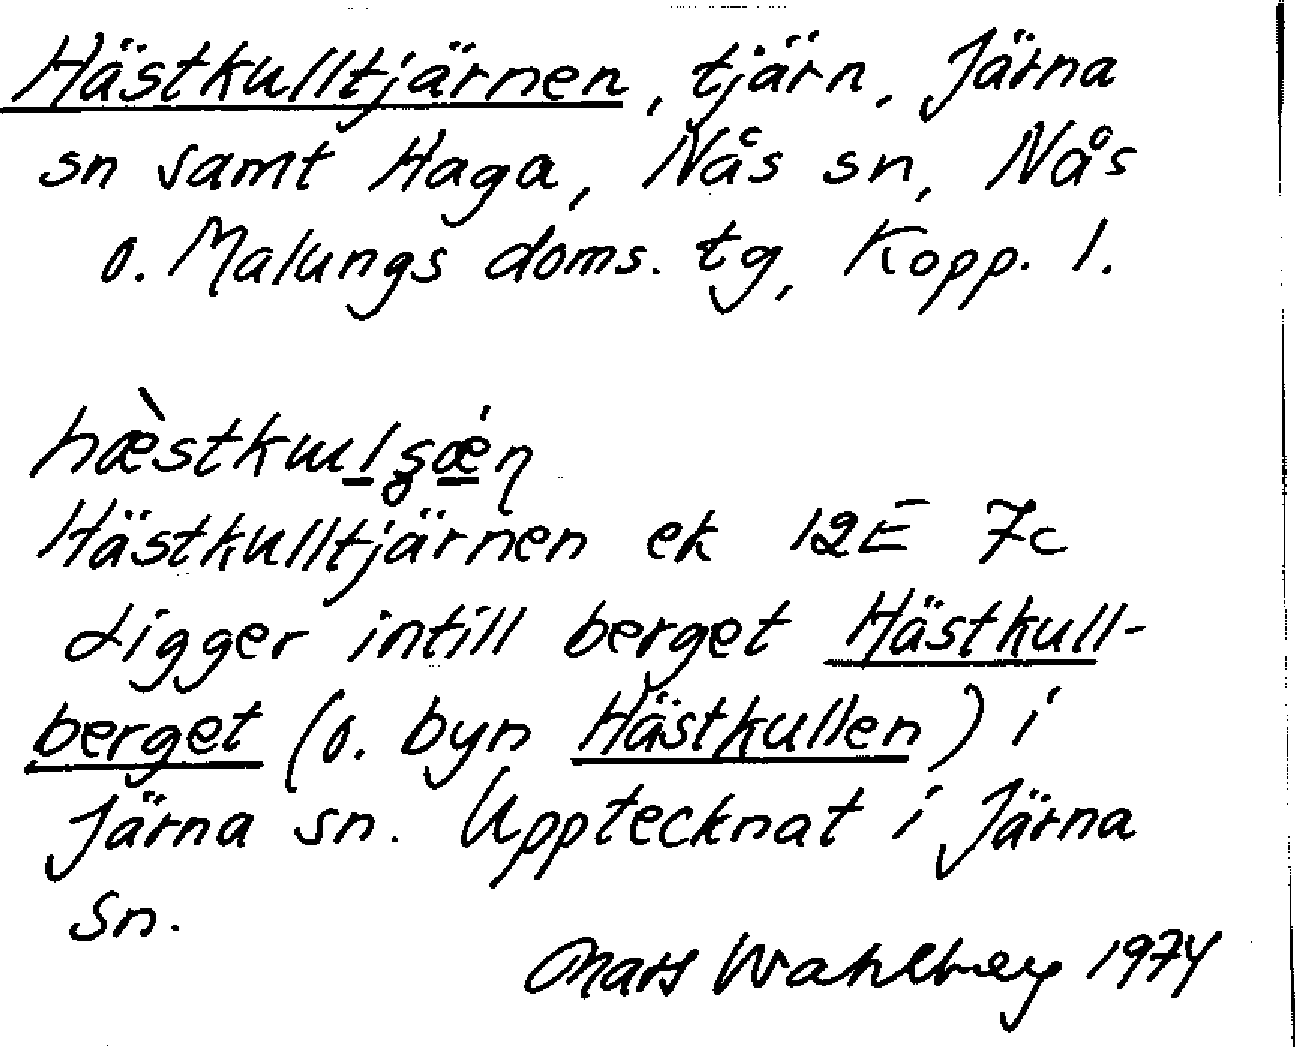 Hästkulltjärnen, tjärn, Järna
sn samt Haga, Nås sn, Nås
o. Malungs doms. tg, Kopp. l.
Hästkulltjärnen ek 12E 7c
Ligger intill berget Hästkull-
berget (o. byn Hästkullen) i
Järna sn. Upptecknat i Järna
sn.
Mats Wahlberg 1974